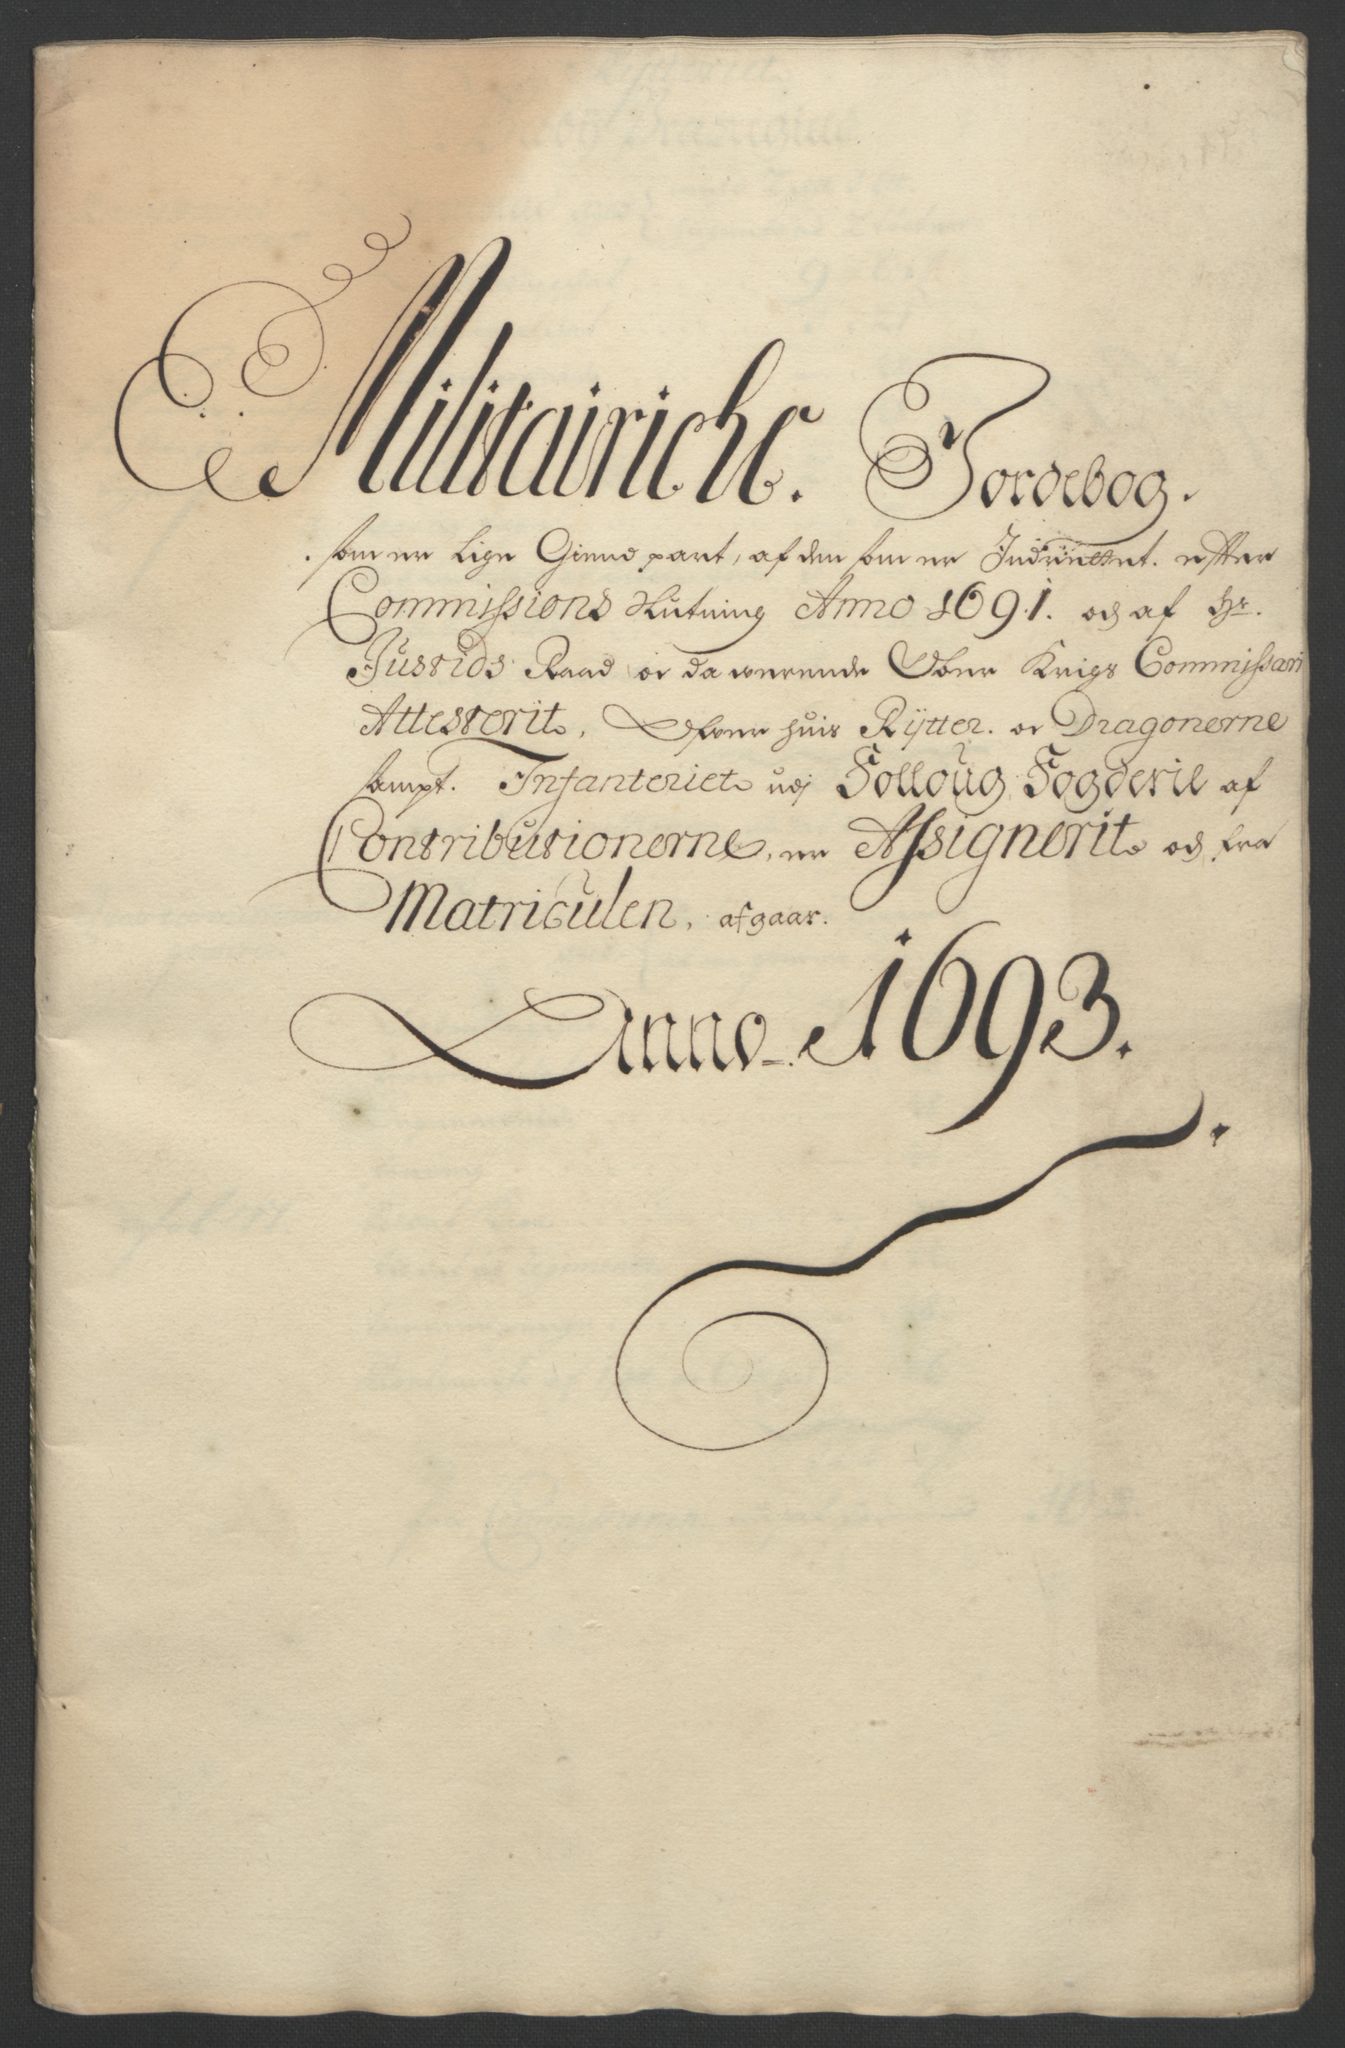 Militairiche. Jordebog.
som er lige Giennpart, af den som er Indrettet. effter
Commissions Slutning Anno 1691. och af Hr.
Justids Raad oc da werende Ober Krigs Commissari
Attesterit, Ofver huis Rÿtter. oc Dragonerne
sampt. Infanteriet udj Folloug Fogderie af
Contributionerne, er Assignerit och fra
Matriculen, afgaar.
Anno 1693.